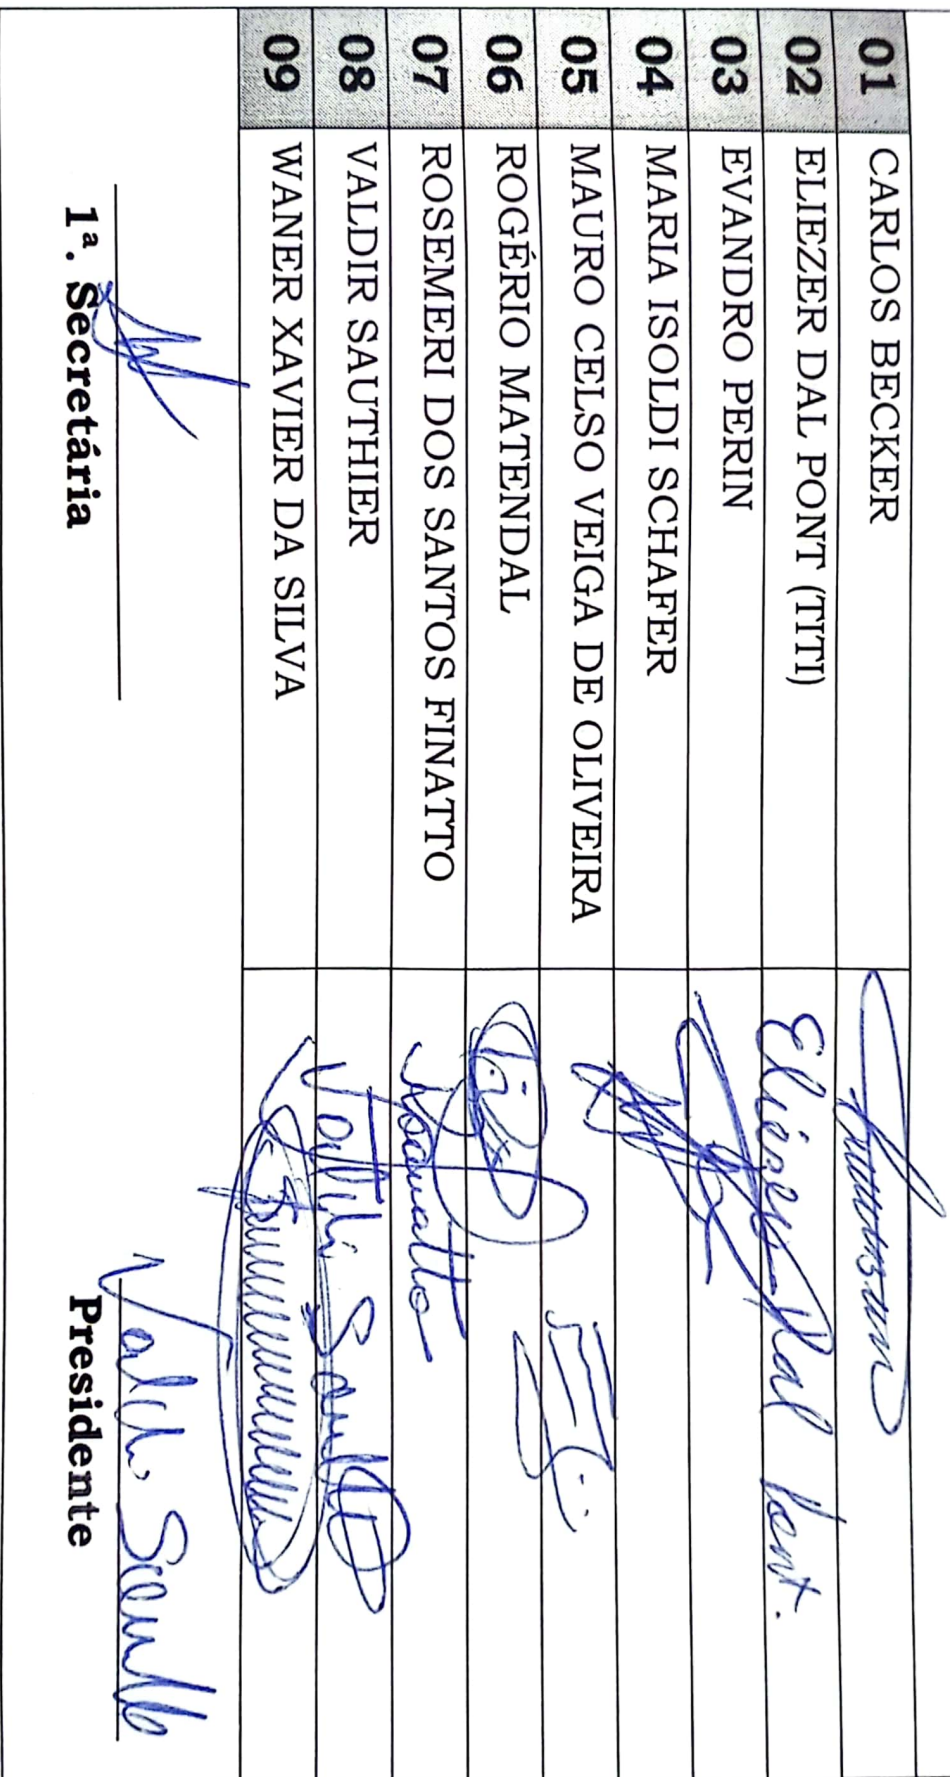 01 CARLOS BECKER
02 ELIEZER DAL PONT (TITI) Eliezer Dal Pont.
03 EVANDRO PERIN
04 MARIA ISOLDI SCHAFER
05 MAURO CELSO VEIGA DE OLIVEIRA
06 ROGÉRIO MATENDAL
07 ROSEMERI DOS SANTOS FINATTO
08 VALDIR SAUTHIER
09 WANER XAVIER DA SILVA
1ª. Secretária
Presidente